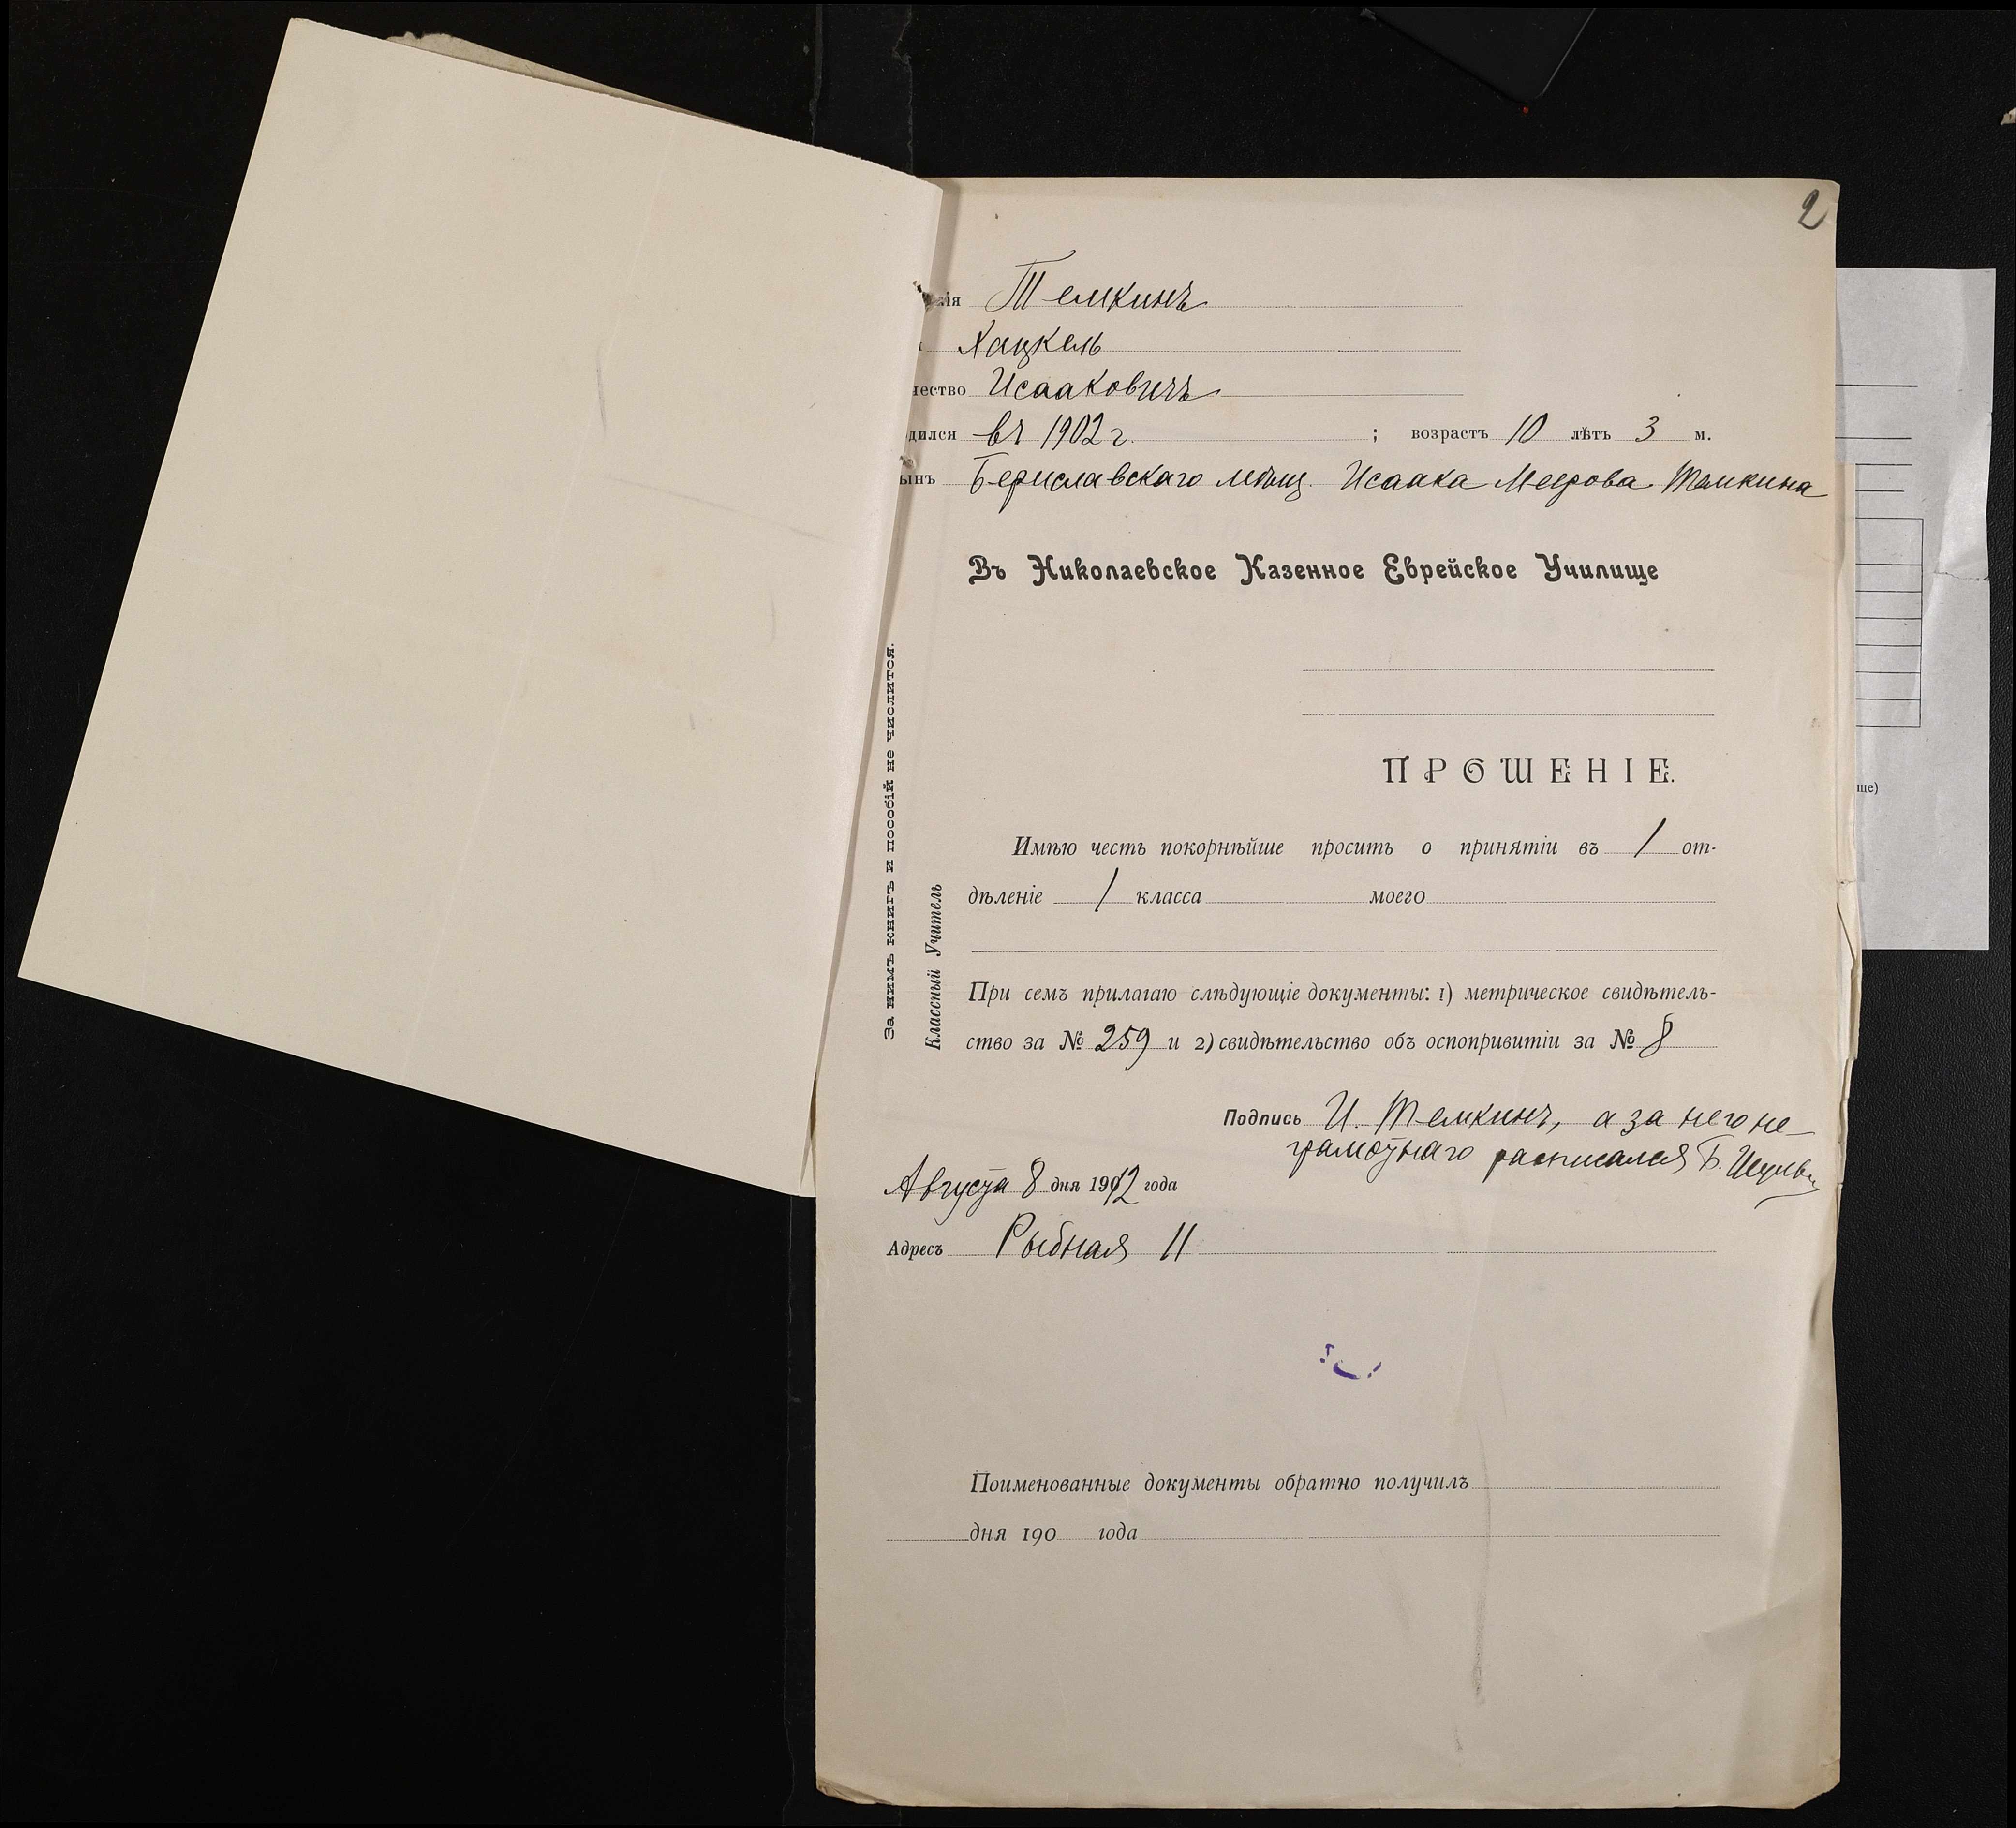 2
нія Темкинъ
Хацкель
чество Исааковичъ
дился въ 1902 г. ; возрастъ 10 лѣтъ 3 м.
ынъ Бериславскаго мѣщ. Исаака Меерова Темкина
Въ Николаевское Казенное Еврейское Училище
ПРОШЕНІЕ.
Имѣю честь покорнѣйше просить о принятіи въ 1 от-
дѣленіе 1 класса моего
При семъ прилагаю слѣдующіе документы: 1) метрическое свидѣтель-
ство за № 259 и 2) свидѣтельство объ оспопривитіи за № 8
Подпись И. Темкинъ, а за него не-
грамотнаго расписался Б.
Августа 8 дня 1912 года
Адресъ Рыбная 11
Поименованные документы обратно получилъ
дня 190 года
За нимъ книгъ и пособій не числится.
Классный Учитель
ше)